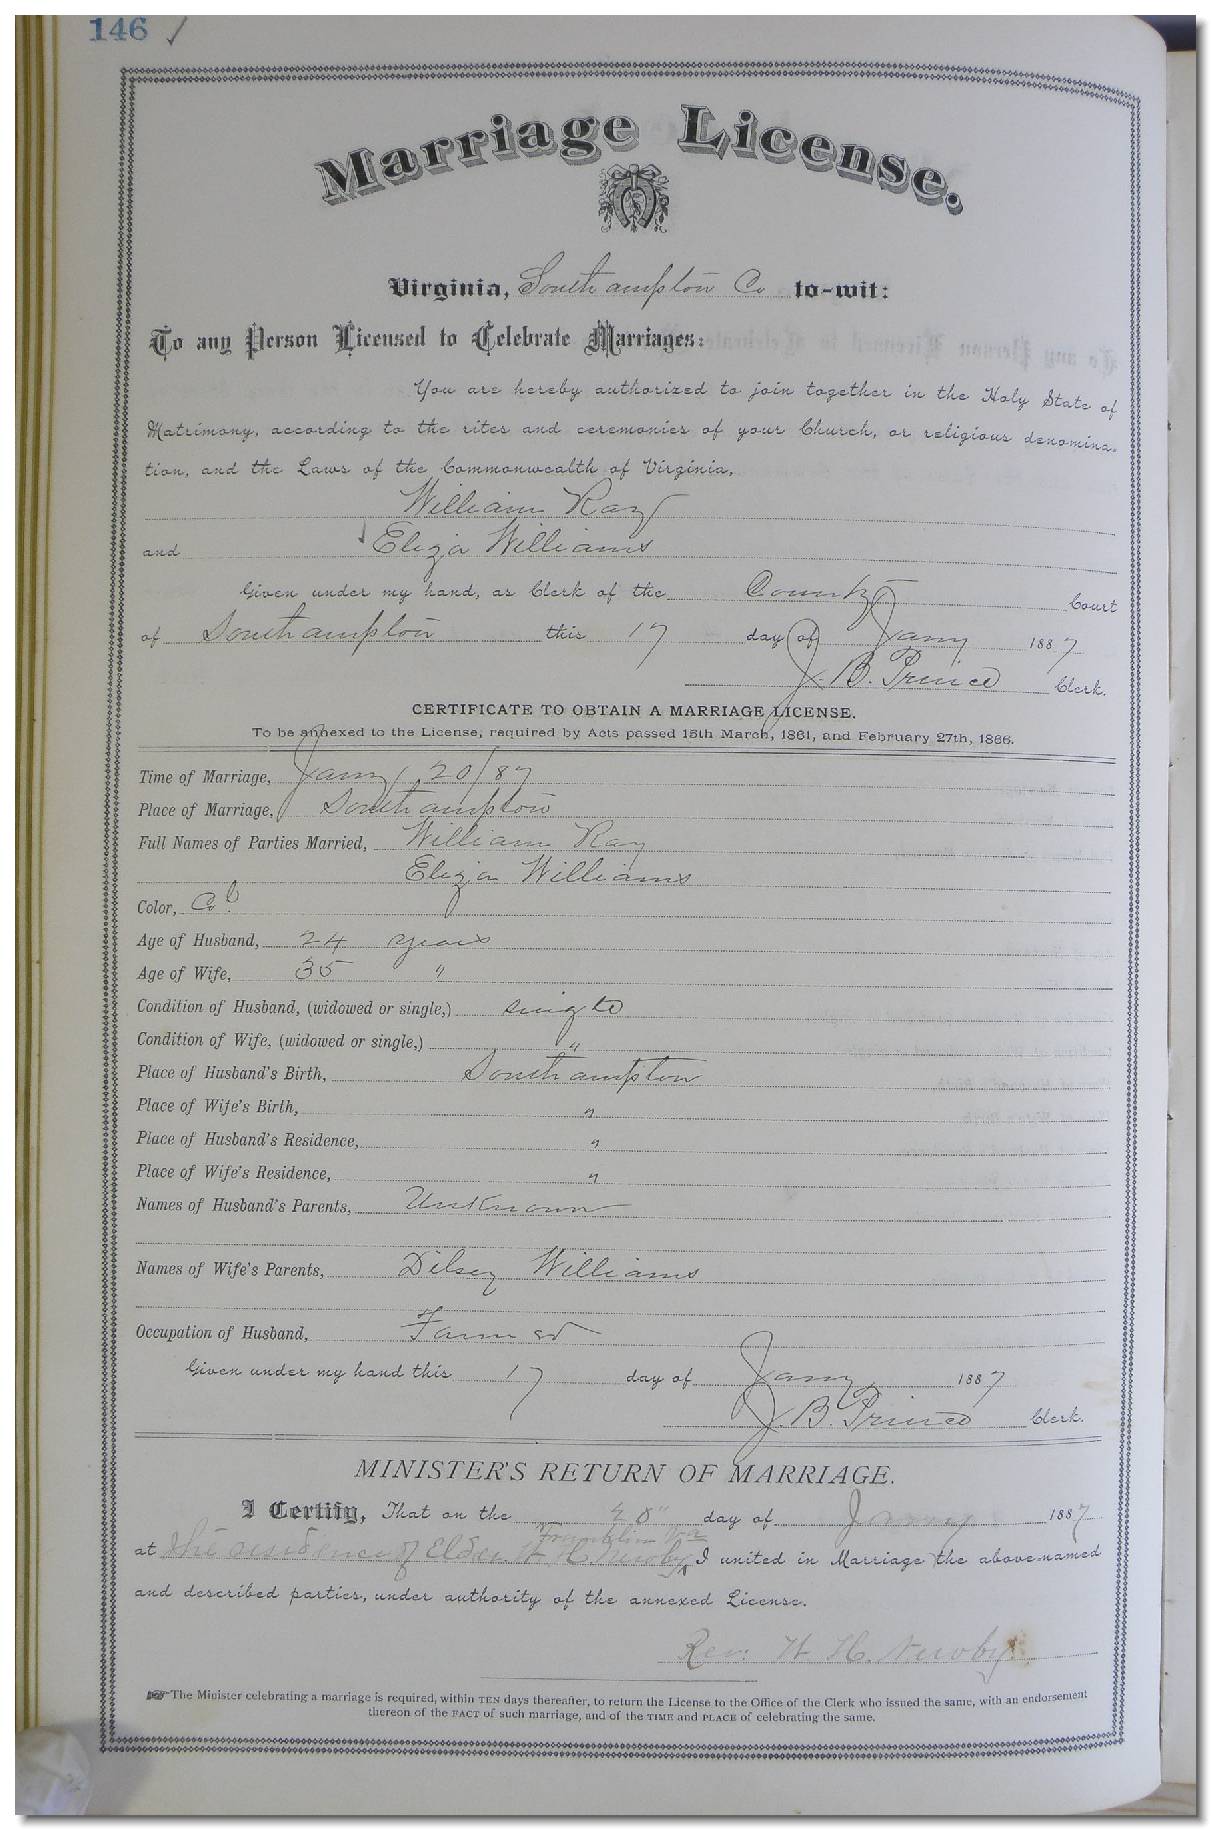 146 ✓
Marriage License.
Virginia, Southampton Co to-wit:
To any Person Licensed to Celebrate Marriages:
You are hereby authorized to join together in the Holy State of
Matrimony, according to the rites and ceremonies of your Church, or religious denomina-
tion, and the Laws of the Commonwealth of Virginia,
William Ray
and Eliza Williams
Given under my hand, as Clerk of the County Court
of Southampton this 17 day of Jany 1887
J. B. Prince Clerk.
CERTIFICATE TO OBTAIN A MARRIAGE LICENSE.
To be annexed to the License, required by Acts passed 15th March, 1861, and February 27th, 1866.
Time of Marriage, Jany 20/87
Place of Marriage, Southampton
Full Names of Parties Married, William Ray
Eliza Williams
Color, Cold
Age of Husband, 24 years
Age of Wife, 35 "
Condition of Husband, (widowed or single,) single
Condition of Wife, (widowed or single,) "
Place of Husband's Birth, Southampton
Place of Wife's Birth, "
Place of Husband's Residence, "
Place of Wife's Residence, "
Names of Husband's Parents, Unknown
Names of Wife's Parents, Dilsey Williams
Occupation of Husband, Farmer
Given under my hand this 17 day of Jany 1887
J. B. Prince Clerk.
MINISTER'S RETURN OF MARRIAGE.
I Certify, That on the 20" day of Jany 1887
Franklin Va
at the residence of Elder H. H. Newby I united in Marriage the above-named
and described parties, under authority of the annexed License.
Rev. H. H. Newby
☞ The Minister celebrating a marriage is required, within TEN days thereafter, to return the License to the Office of the Clerk who issued the same, with an endorsement
thereon of the FACT of such marriage, and of the TIME and PLACE of celebrating the same.